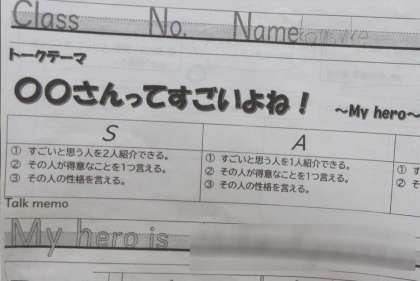 Class No. Name
トークテーマ
〇〇さんってすごいよね！ ～My hero～
S A
① すごいと思う人を2人紹介できる。
② その人が得意なことを1つ言える。
③ その人の性格を言える。
① すごいと思う人を1人紹介できる。
② その人が得意なことを1つ言える。
③ その人の性格を言える。
① す
② そ
Talk memo
My hero is